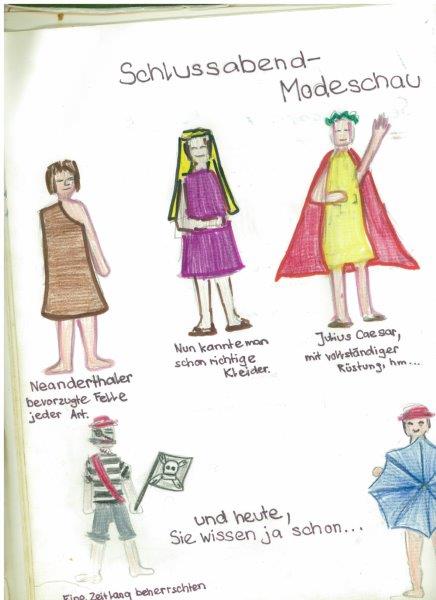 Schlussabend-
Modeschau
Neanderthaler
bevorzugte Felle
jeder Art.
Nun kannte man
schon richtige
Kleider.
Julius Caesar,
mit vollständiger
Rüstung, hm...
und heute,
Sie wissen ja schon...
Eine Zeitlang beherrschten